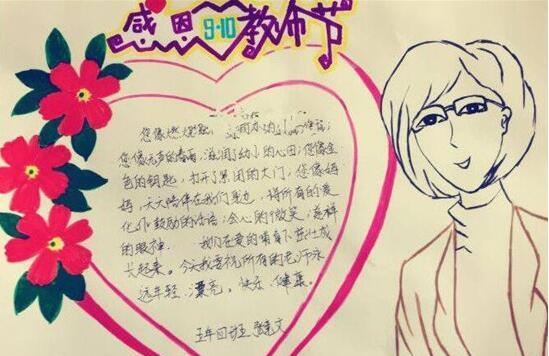 感恩9·10教师节
您像燃烧
您像无声的春雨,滋润了幼小的心田;您像金
色的钥匙,打开了乐园的大门,您像妈
妈,天天陪伴在我们身边,将所有的爱
化作鼓励的话语,会心的微笑,慈祥
的眼神 我们在爱的哺育下茁壮成
长起来。今天我要祝所有的老师永
远年轻、漂亮、快乐、健康。
五年四班